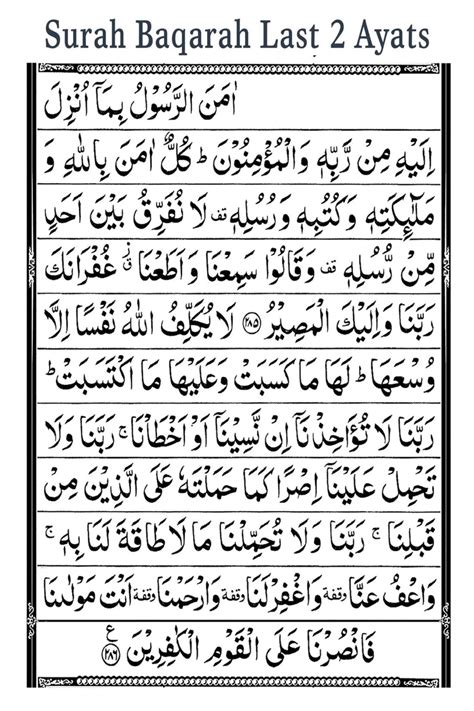 Surah Baqarah Last 2 Ayats
اٰمَنَ الرَّسُوْلُ بِمَاۤ اُنْزِلَ
اِلَيْهِ مِنْ رَّبِّهٖ وَالْمُؤْمِنُوْنَ ؕ كُلٌّ اٰمَنَ بِاللّٰهِ وَ
مَلٰٓئِكَتِهٖ وَكُتُبِهٖ وَرُسُلِهٖ قف لَا نُفَرِّقُ بَيْنَ اَحَدٍ
مِّنْ رُّسُلِهٖ قف وَقَالُوْا سَمِعْنَا وَاَطَعْنَا ۫ غُفْرَانَكَ
رَبَّنَا وَاِلَيْكَ الْمَصِيْرُ ﴿۲۸۵﴾ لَا يُكَلِّفُ اللّٰهُ نَفْسًا اِلَّا
وُسْعَهَا ؕ لَهَا مَا كَسَبَتْ وَعَلَيْهَا مَا اكْتَسَبَتْ ؕ
رَبَّنَا لَا تُؤَاخِذْنَاۤ اِنْ نَّسِيْنَاۤ اَوْ اَخْطَاْنَا ۚ رَبَّنَا وَلَا
تَحْمِلْ عَلَيْنَاۤ اِصْرًا كَمَا حَمَلْتَهٗ عَلَى الَّذِيْنَ مِنْ
قَبْلِنَا ۚ رَبَّنَا وَلَا تُحَمِّلْنَا مَا لَا طَاقَةَ لَنَا بِهٖ ۚ
وَاعْفُ عَنَّا وقفة وَاغْفِرْ لَنَا وقفة وَارْحَمْنَا وقفة اَنْتَ مَوْلٰىنَا
فَانْصُرْنَا عَلَى الْقَوْمِ الْكٰفِرِيْنَ ﴿۲۸۶﴾ ع